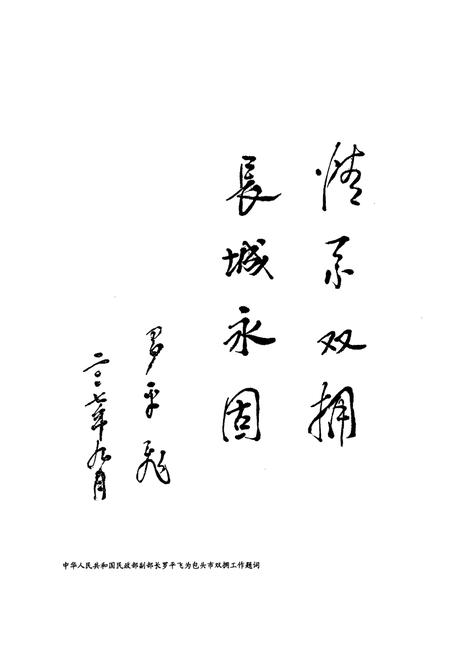 情系双拥
長城永固
罗平飞
二〇〇七年九月
中华人民共和国民政部副部长罗平飞为包头市双拥工作题词